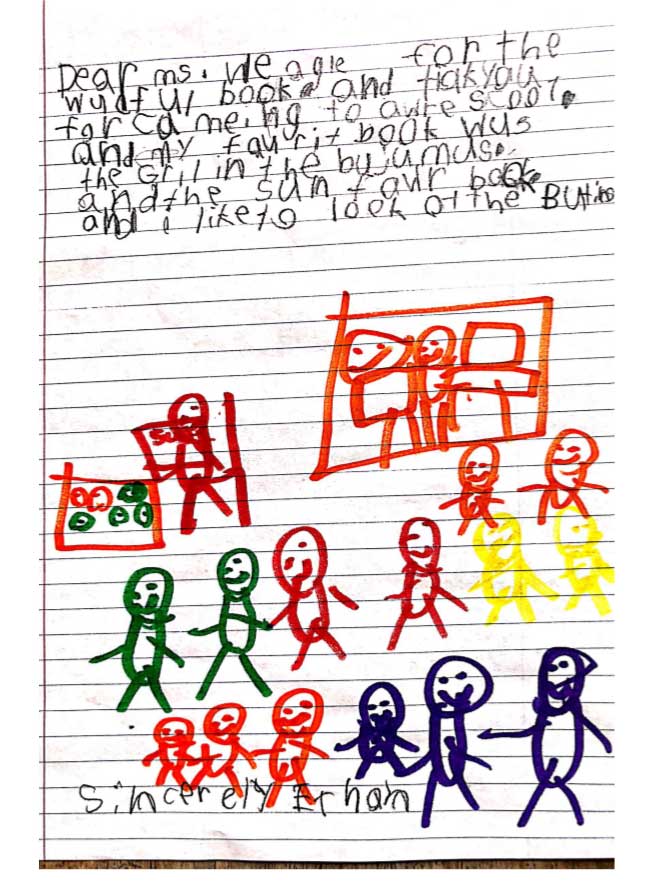 Dear ms. We agle for the
wudful book. and tiakyou
for ca me.ing to awre scool.
and my faurit book wus
the Gril in the bujamuse.
and the sun faur book
and i like to look at the Buttins
Sincerely Erhan